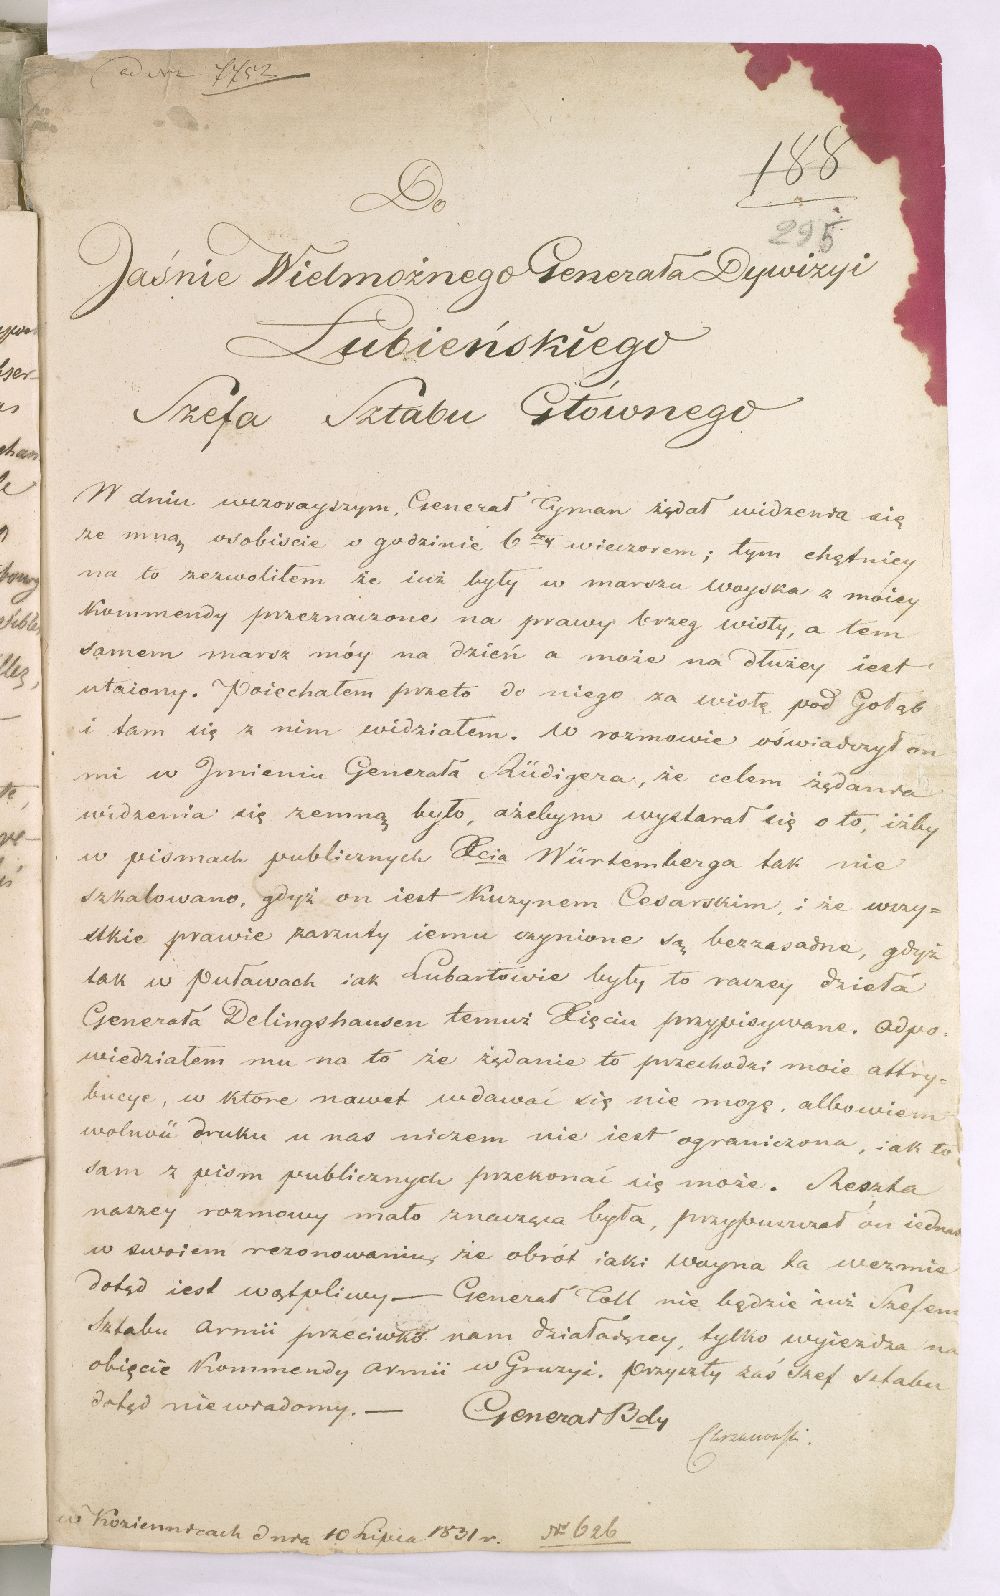 ad Nr 7752
188
295
Do
Jaśnie Wielmożnego Generała Dywizyi
Łubieńskiego
Szefa Sztabu Głównego
W dniu wczorayszym, Generał Tyman żądał widzenia się
ze mną osobiscie o godzinie 6tey wieczorem; tym chętniey
na to zezwoliłem że iuż były w marszu woyska z moiey
Kommendy przeznaczone na prawy brzeg wisły, a tem
samem marsz móy na dzień a może na dłużey iest
utaiony. Poiechałem przeto do niego za wisłę pod Gołąb
i tam się z nim widziałem. W rozmowie oświadczył on
mi w Jmieniu Generała Rüdigera, że celem żądania
widzenia się zemną było, ażebym wystarał się o to, iżby
w pismach publicznych Xcia Würtemberga tak nie
szkalowano, gdyż on iest Kuzynem Cesarskim, i że wszy=
stkie prawie zarzuty iemu czynione są bezzasadne, gdyż
tak w Puławach iak Lubartowie były to raczey dzieła
Generała Delingshausen temuż Xięciu przypisywane. Odpo-
wiedziałem mu na to że żądanie to przechodzi moie attry-
bucye, w które nawet wdawać się nie mogę, albowiem
wolność druku u nas niczem nie iest ograniczona, iak to
sam z pism publicznych przekonać się może. Reszta
naszey rozmowy mało znacząca była, przypuszczał on iednak
w swoiem rezonowaniu, że obrót iaki woyna ta wezmie
dotąd iest wątpliwy — Generał Toll nie będzie iuż Szefem
Sztabu Armii przeciwko nam działaiącey, tylko wyieżdza na
obięcie Kommendy Armii w Gruzyi. Przyszły zaś Szef sztabu
dotąd niewiadomy. —
Generał Bdy
Chrzanowski.
w Kozienicach dnia 10 Lipca 1831 r.
N° 626